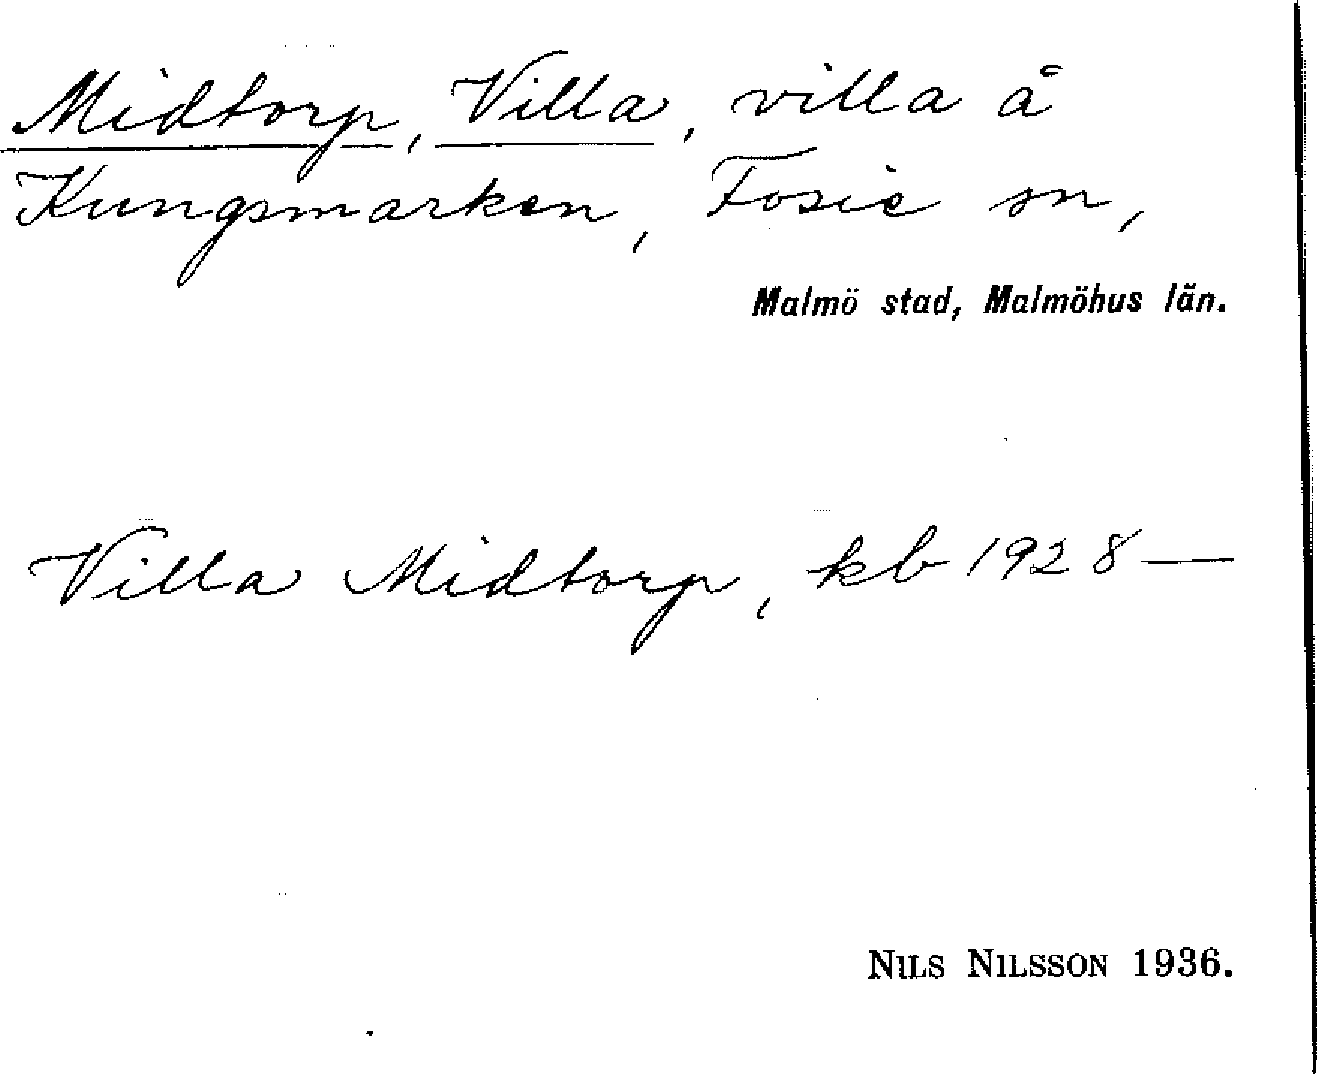 Midtorp, Villa, villa å
Kungsmarken, Fosie sn,
Malmö stad, Malmöhus län.
Villa Midtorp, kb 1928—
NILS NILSSON 1936.